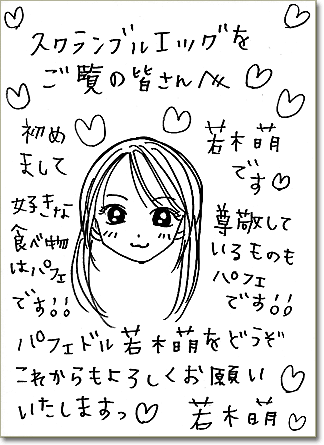 スクランブルエッグを
ご覧の皆さんへ
初め
まして
若木萌
です♡
好きな
食べ物
はパフェ
です!!
尊敬して
いるものも
パフェ
です!!
パフェドル若木萌をどうぞ
これからもよろしくお願い
いたしますっ♡ 若木萌